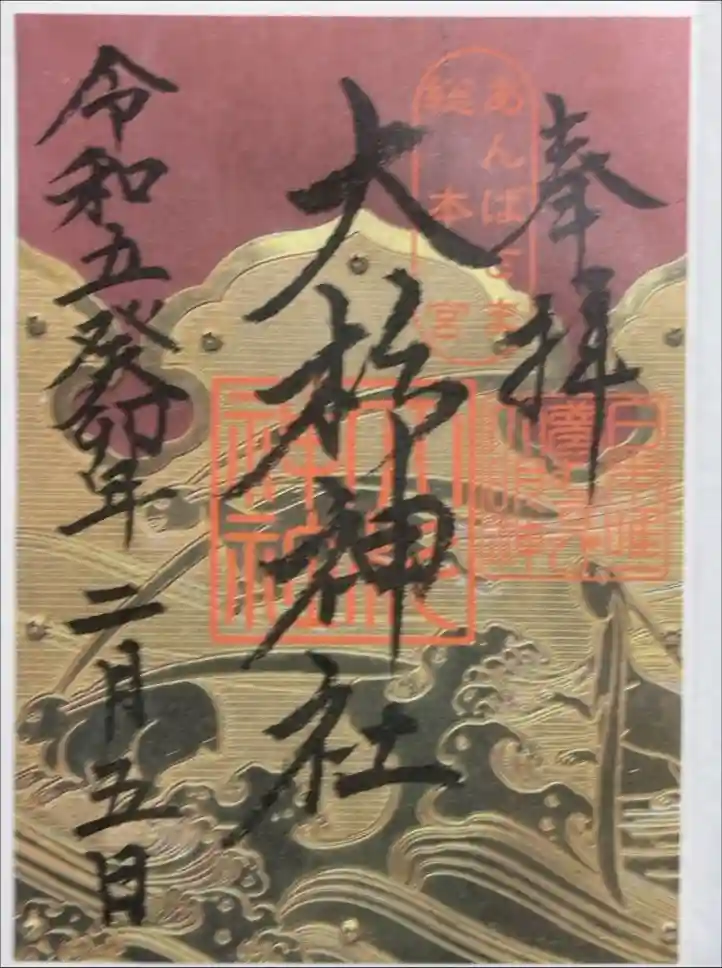 奉拝
あんばさま
総本宮
大杉神社
大杉神社
令和五癸卯年二月五日